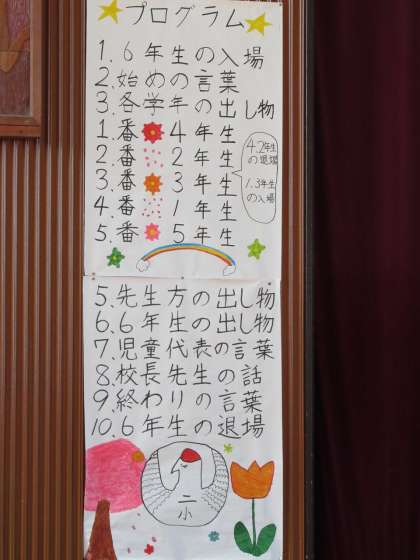 プログラム
1.6年生の入場
2.始めの言葉
3.各学年の出し物
1.番 4年生
2.番 2年生
3.番 3年生
4.番 1年生
5.番 5年生
4.2年生
の退場
1.3年生
の入場
5.先生方の出し物
6.6年生の出し物
7.児童代表の言葉
8.校長先生の話
9.終わりの言葉
10.6年生の退場
二
小